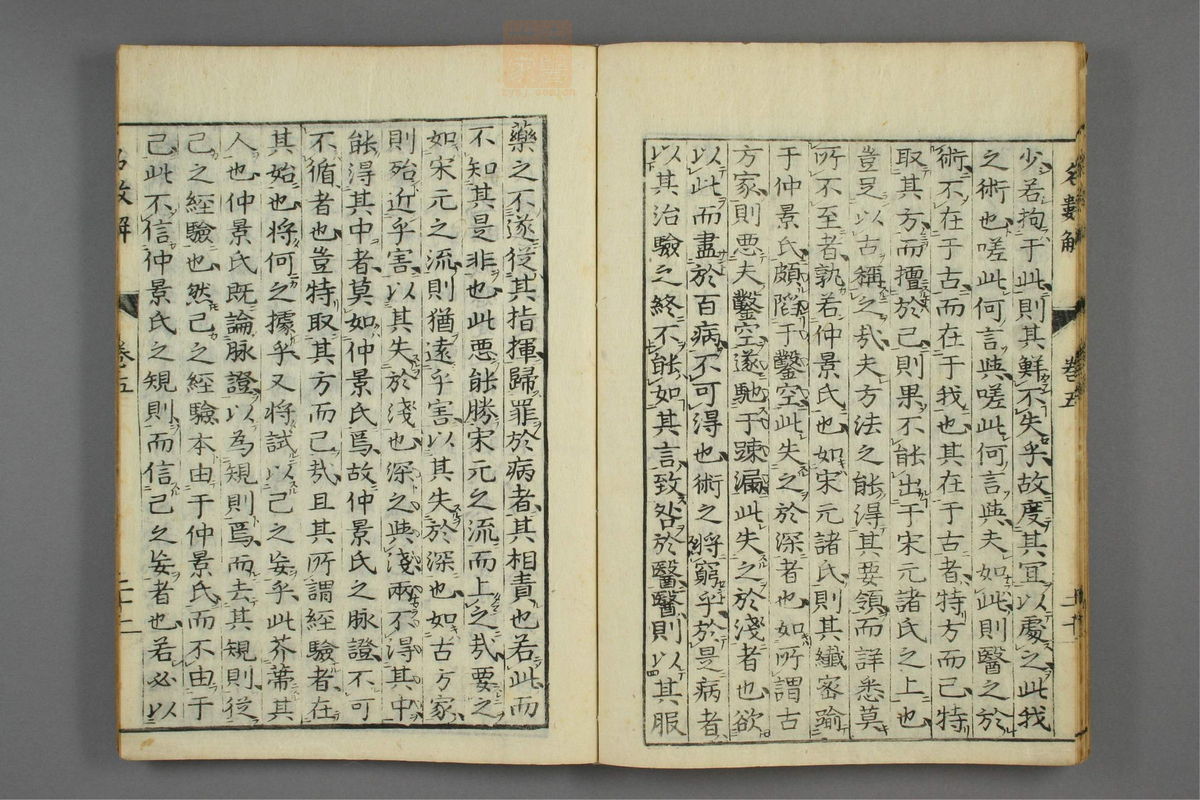 少若拘于此則其鮮不失乎故度其宜以處之此我
之術也嗟此何言與嗟此何言與夫如此則醫之於
術不在于古而在于我也其在于古者特方而已特
取其方而擅於己則果不能出于宋元諸氏之上也
豈足以古稱之哉夫方法之能得其要領而詳悉莫
所不至者孰若仲景氏也如宋元諸氏則其纖密踰
于仲景氏頗陷于鑿空此失之於深者也如所謂古
方家則惡夫鑿空遂馳于疎漏此失之於淺者也欲
以此而盡於百病不可得也術之將窮乎於是病者
以其治驗之終不能如其言致咎於醫醫則以其服
名數解 卷五
藥之不遂從其指揮歸罪於病者其相責也若此而
不知其是非也此惡能勝宋元之流而上之哉要之
如宋元之流則猶遠乎害以其失於深也如古方家
則殆近乎害以其失於淺也深之與淺兩不得其中
能得其中者莫如仲景氏焉故仲景氏之脉證不可
不循者也豈特取其方而已哉且其所謂經驗者在
其始也將何之據乎又將試以己之妄乎此芥蔕其
人也仲景氏既論脉證以為規則焉而去其規則從
己之經驗也然己之經驗本由于仲景氏而不由于
己此不信仲景氏之規則而信己之妄者也若必以
名數解 卷五